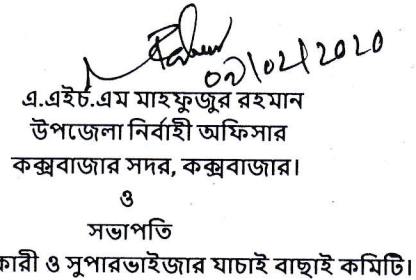 ০২/০২/২০২০
এ.এইচ.এম মাহফুজুর রহমান
উপজেলা নির্বাহী অফিসার
কক্সবাজার সদর, কক্সবাজার।
ও
সভাপতি
কারী ও সুপারভাইজার যাচাই বাছাই কমিটি।